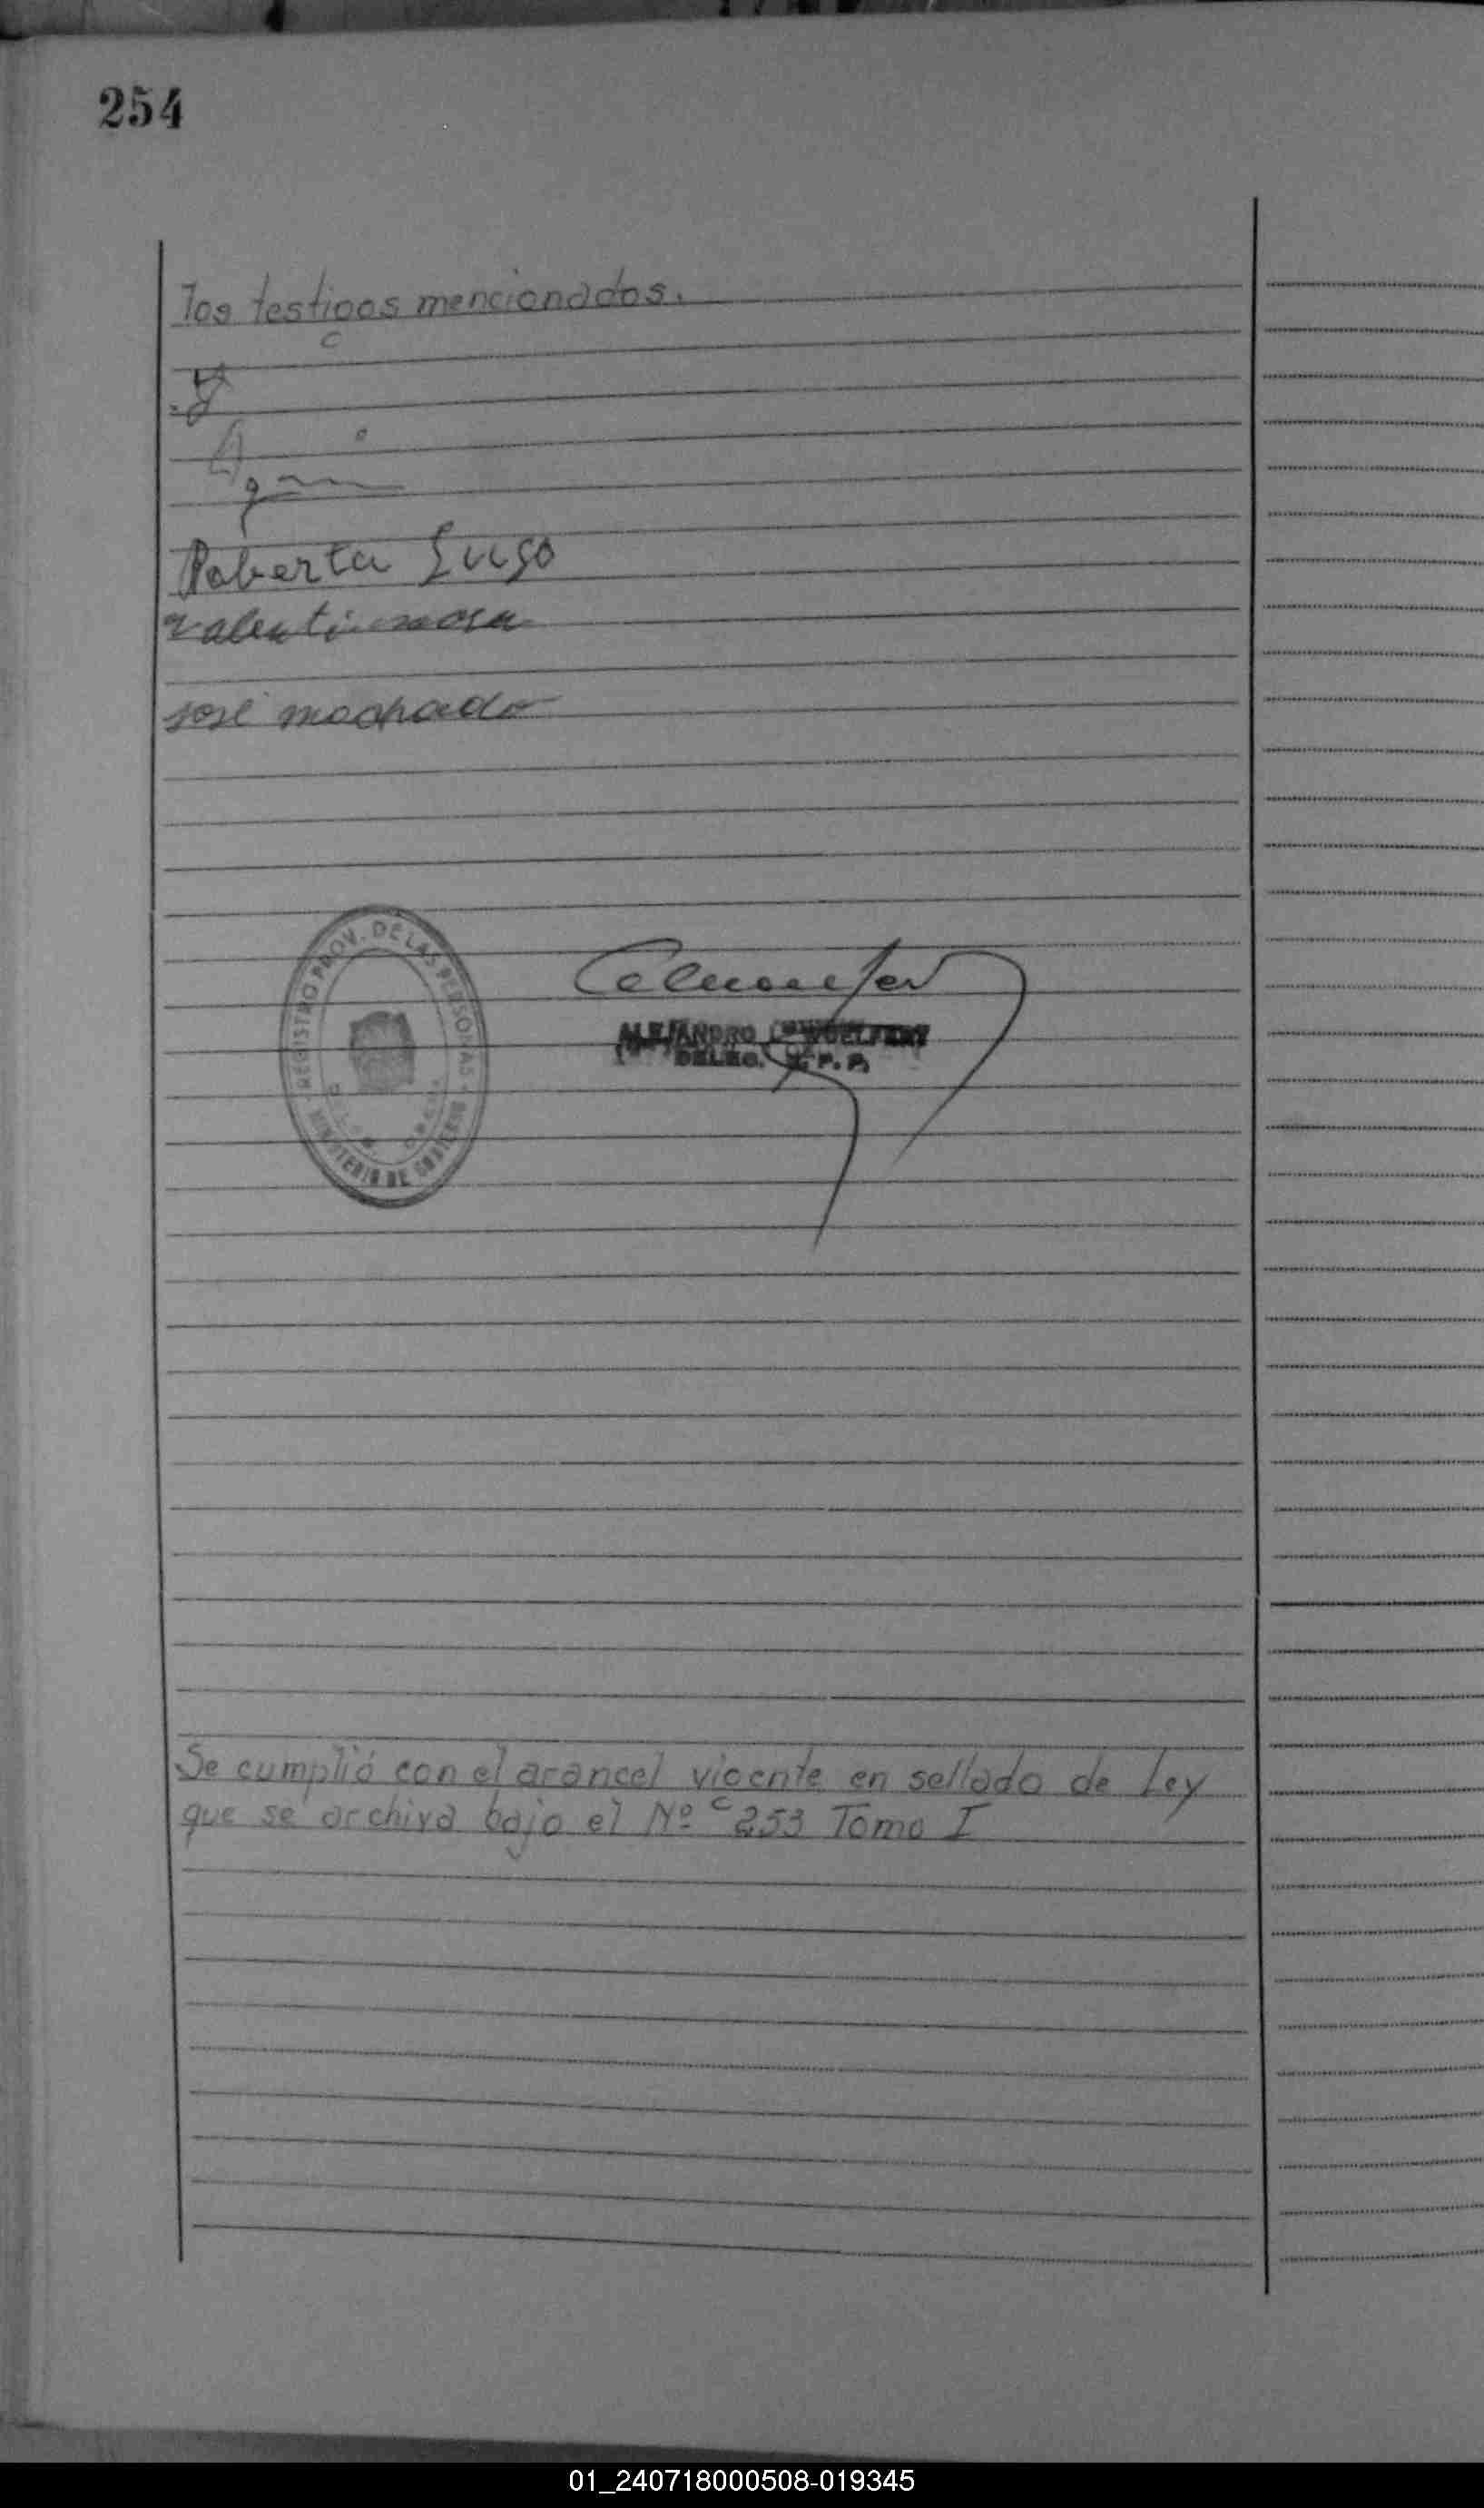 254
los testigos mencionados.
Roberta Lugo
Valentin
José machado
REGISTRO PROV. DE LAS PERSONAS
MINISTERIO DE GOBIERNO
ALEJANDRO WUELFERT
DELEG. R. P. P.
Se cumplió con el arancel vigente en sellado de Ley
que se archiva bajo el Nº 253 Tomo I
01_240718000508-019345